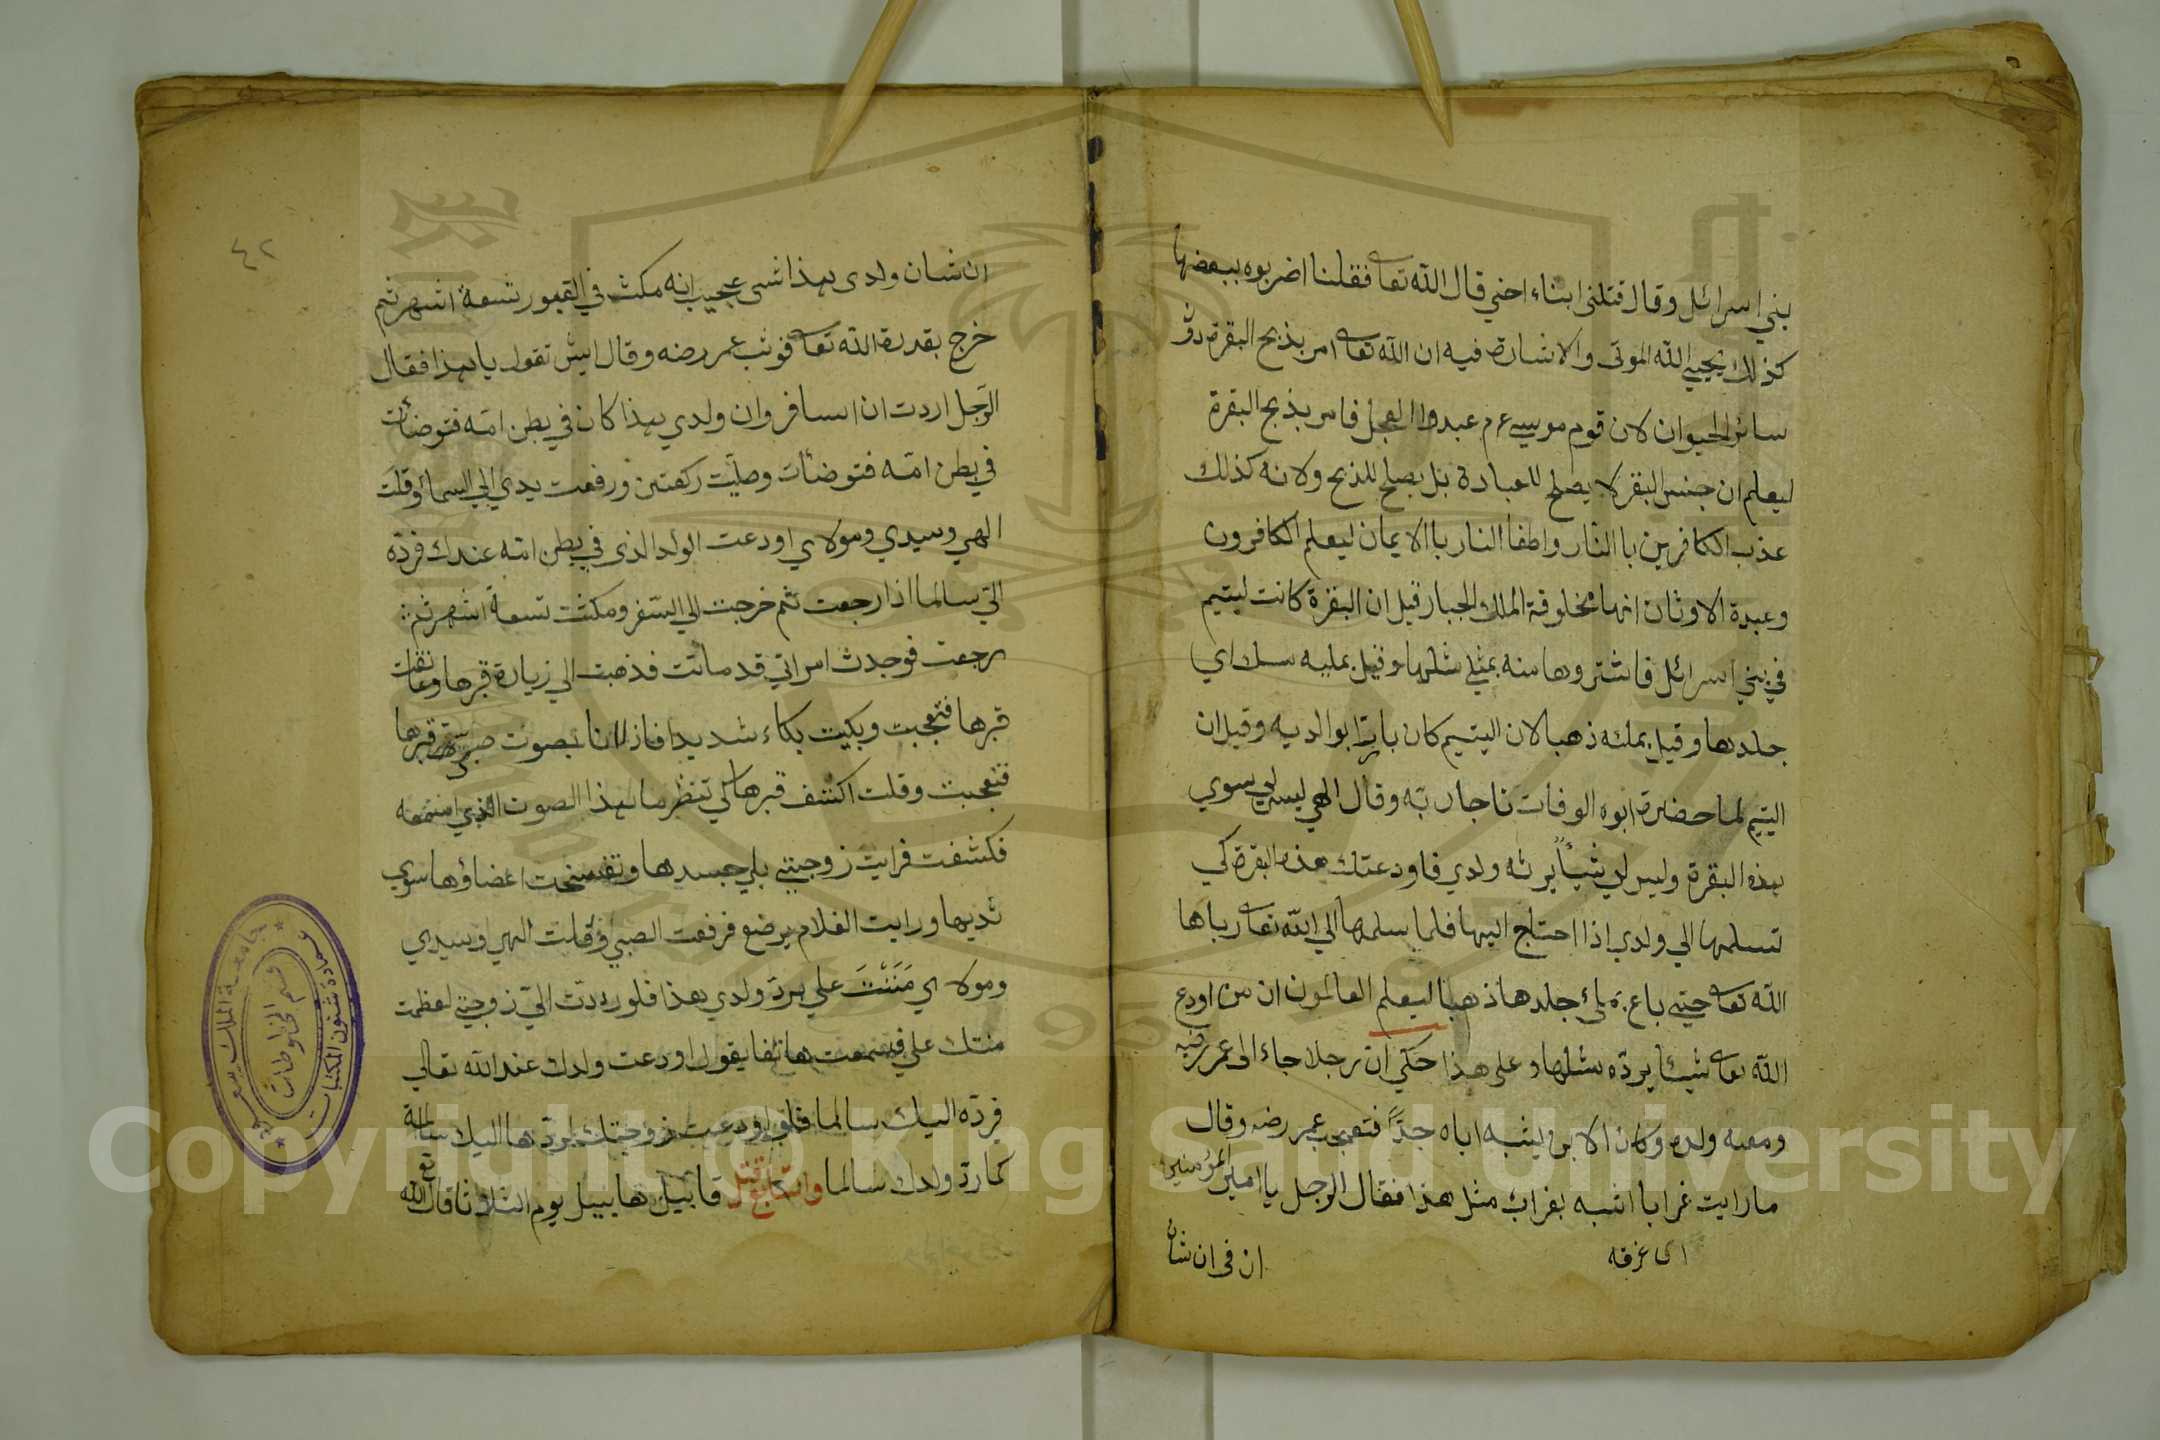 بني اسرائل وقال قتلني ابناء اخي قال الله تعا فقلنا اضربوه ببعضها
كذلك يحيي الله الموتى والاشارة فيه ان الله تعا امر بذبح البقرة دون
سائر الحيوان لان قوم موسى عم عبدوا العجل فامر بذبح البقرة
ليعلم ان جنس البقر لا يصلح للعبادة بل يصلح للذبح ولانه كذلك
عذب الكافرين باالنار واطفأ النار باالايمان ليعلم الكافرون
وعبدة الاوثان انها مخلوقة الملك الجبار قيل ان البقرة كانت ليتيم
في بني اسرائل فاشتروها منه بمثلي مثلها وقيل بمليه سلك اي
جلدها وقيل بملئه ذهبا لان اليتيم كان بارا بوالديه وقيل ان
اليتيم لما حضرة ابوه الوفات ناجا ربه وقال الهي ليس لي سوي
هذه البقرة وليس لي شيأ يرثه ولدي فاودعتك هذه البقرة كي
تسلمها الي ولدي اذا احتاج اليها فلما سلمها الي الله تعا رباها
الله تعا حتي باع بملئ جلدها ذهبا ليعلم العالمون ان من اودع
الله تعا شيئا يرده مثلها وعلى هذا حكي ان رجلا جاء الى عمر رضيه
ومعه ولده وكان الابن يشبه اباه جدًّا فتعجب عمر رضه وقال
ما رايت غرابا اشبه بغراب مثل هذا فقال الرجل يا امير المؤمنين
ان شان
٤٢
ان شان ولدى هذا شى عجيب انه مكث في القبور تسعة اشهر ثم
خرج بقدرة الله تعا فوثب عمر رضه وقال ايش تقول يا هذا فقال
الرجل اردت ان اسافر وان ولدي هذا كان في بطن امه فتوضأت
في بطن امه فتوضأت وصليت ركعتين ورفعت يدي الي السمأ وقلت
الهي وسيدي ومولاي اودعت الولد الذى في بطن امه عندك فرده
الي سالما اذا رجعت ثم خرجت الي السفر ومكثت تسعة اشهر ثم
رجعت فوجدت امراتي قد ماتت فذهبت الي زيارة قبرها وعانقت
قبرها فتعجبت وبكيت بكاء شديدا فاذا انا بصوت صبي قبرها
فتعجبت وقلت اكشف قبرها لي تنظر ما هذا الصوت الذي استمعه
فكشفت فرايت زوجتي بلي جسدها وتفسخت اعضاؤها سوي
ثديها ورايت الغلام يرضع فرفعت الصبي وقلت الهي وسيدي
ومولاي مَنَنْتَ علي برد ولدي هذا فلو رددت الي زوجتي لعظمت
منتك علي فسمعت هاتفا يقول اودعت ولدك عند الله تعالي
فرده اليك سالما فلو اودعت زوجتك لردها اليك سالمة
كما رد ولدك سالما واما قتل قابيل هابيل يوم الثلاثا قال الله تع
جامعة الملك سعود
عمادة شئون المكتبات
قسم المخطوطات
1957
Copyright © King Saud University